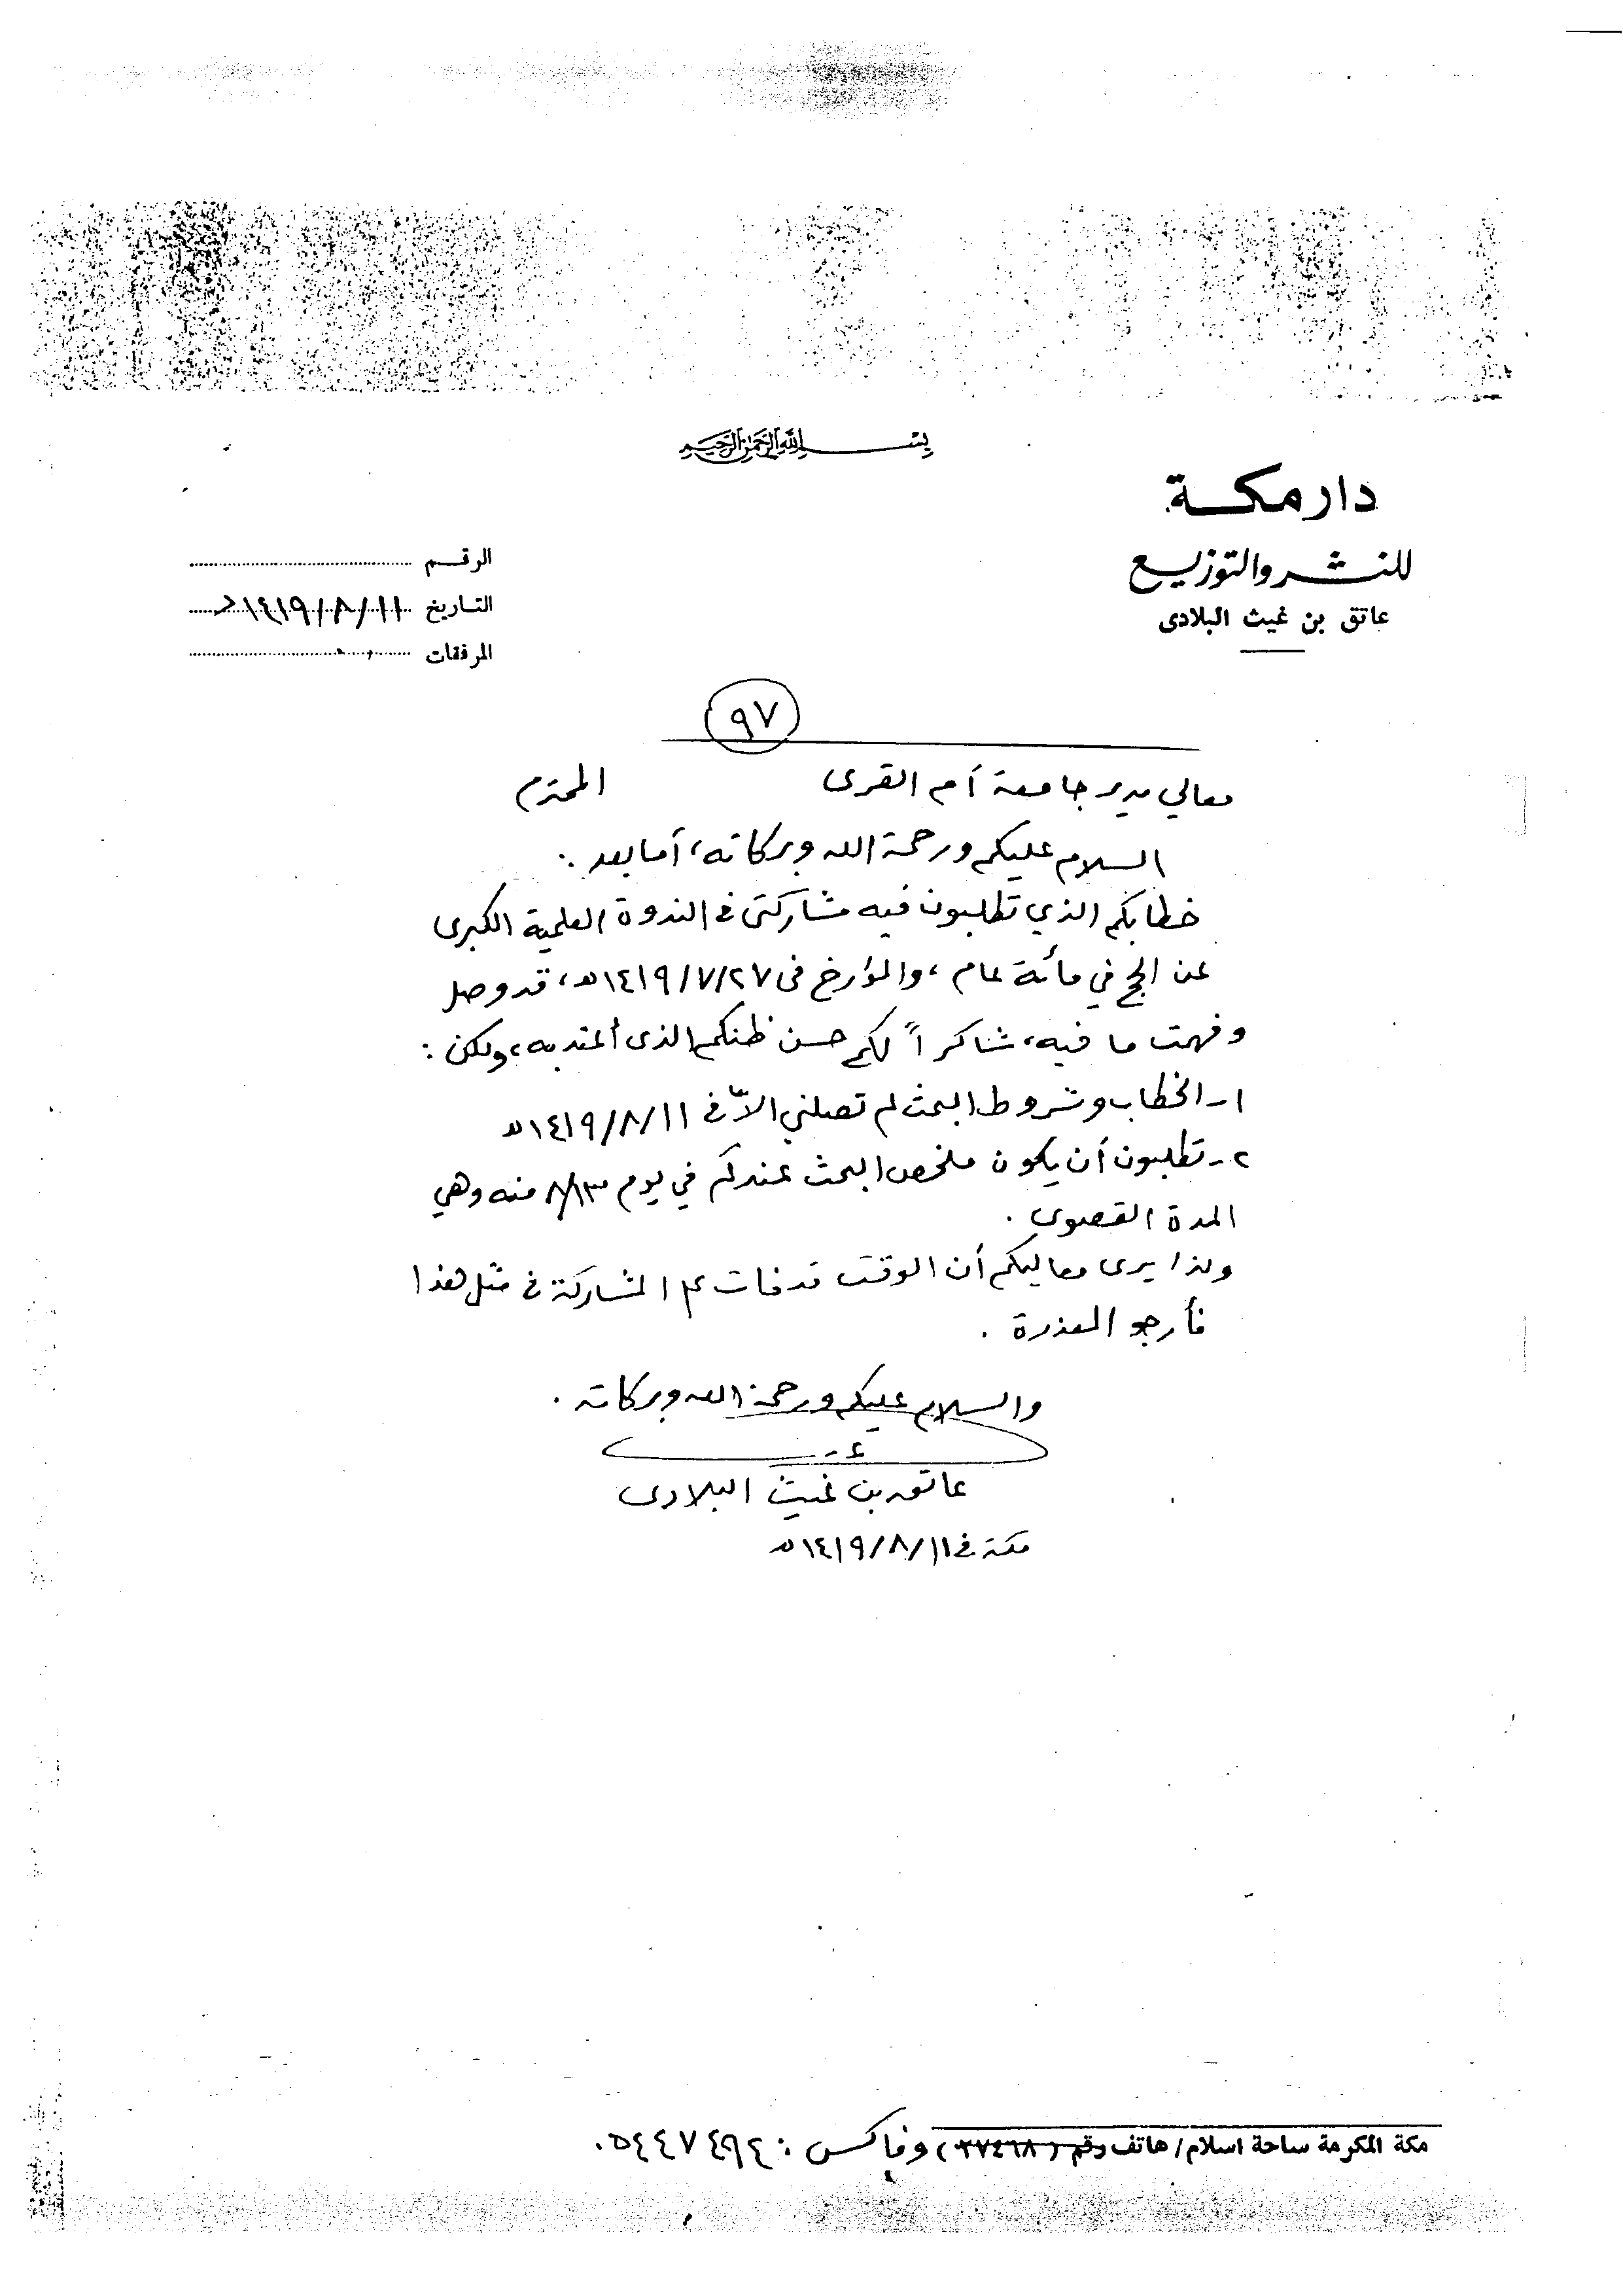 بسم الله الرحمن الرحيم
دار مكة
للنشر والتوزيع
عاتق بن غيث البلادى
الرقم
التاريخ ١٤١٩/٨/١١هـ
المرفقات
٩٧
معالي مدير جامعة أم القرى المحترم
السلام عليكم ورحمة الله وبركاته، أما بعد :
خطابكم الذي تطلبون فيه مشاركتى فى الندوة العلمية الكبرى
عن الحج في مائة عام، والمؤرخ فى ١٤١٩/٧/٢٧هـ، قد وصل
وفهمت ما فيه، شاكراً لكم حسن ظنكم الذى أعتد به، ولكن :
١ـ الخطاب وشروط البحث لم تصلني الاّ فى ١٤١٩/٨/١١هـ
٢ـ تطلبون أن يكون ملخص البحث عندكم في يوم ٨/١٣ منه وهي
المدة القصوى .
ولذا يرى معاليكم أن الوقت قد فات المشاركة فى مثل هذا
فأرجو المعذرة .
والسلام عليكم ورحمة الله وبركاته .
عاتق بن غيث البلادى
مكة فى ١٤١٩/٨/١١هـ
مكة المكرمة ساحة اسلام/ هاتف رقم (٣٧٤٦٨) وفاكس : ٥٤٤٧٤٩٤.